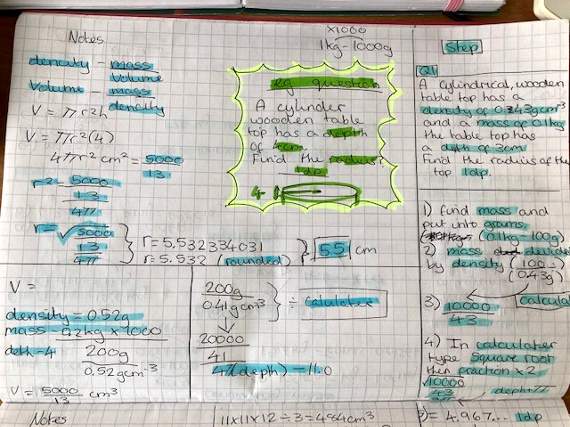 Notes
density - mass
Volume
Volume - mass
density
V = πr²h
V = πr²(4)
4πr² cm² = 5000
13
r² = 5000
13
4π
r = √5000
13
4π
r = 5.532334031
r = 5.532 (rounded)
5.5 cm
x1000
1kg - 1000g
eg question
A cylinder
wooden table
top has a depth
of 4cm.
Find the radius,
1dp
4
Step
Q1
A cylindrical, wooden
table top has a
density of 0.43gcm³
and a mass of 0.1kg
the table top has
a depth of 3cm
Find the radius of the
top 1dp.
1) find mass and
put into grams.
(0.1kg - 100g)
2) mass divided
by density (100
0.43g)
3) 10000
43
4) In calculator
type square root
then fraction x2
√10000
43
depth
V =
density = 0.52g
mass - 0.2kg x 1000
deth - 4
200g
0.52gcm⁻³
V = 5000 cm³
13
200g
0.41gcm³
÷ calculater
20000
41
4(depth) = 11.0
Notes
11x11x12÷3 = 484cm³
= 4.967... 1dp